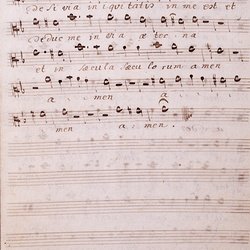 de si via iniquitatis in me est et
deduc me in via æterina
et in sæcula sæculorum amen
a men a
men a men.